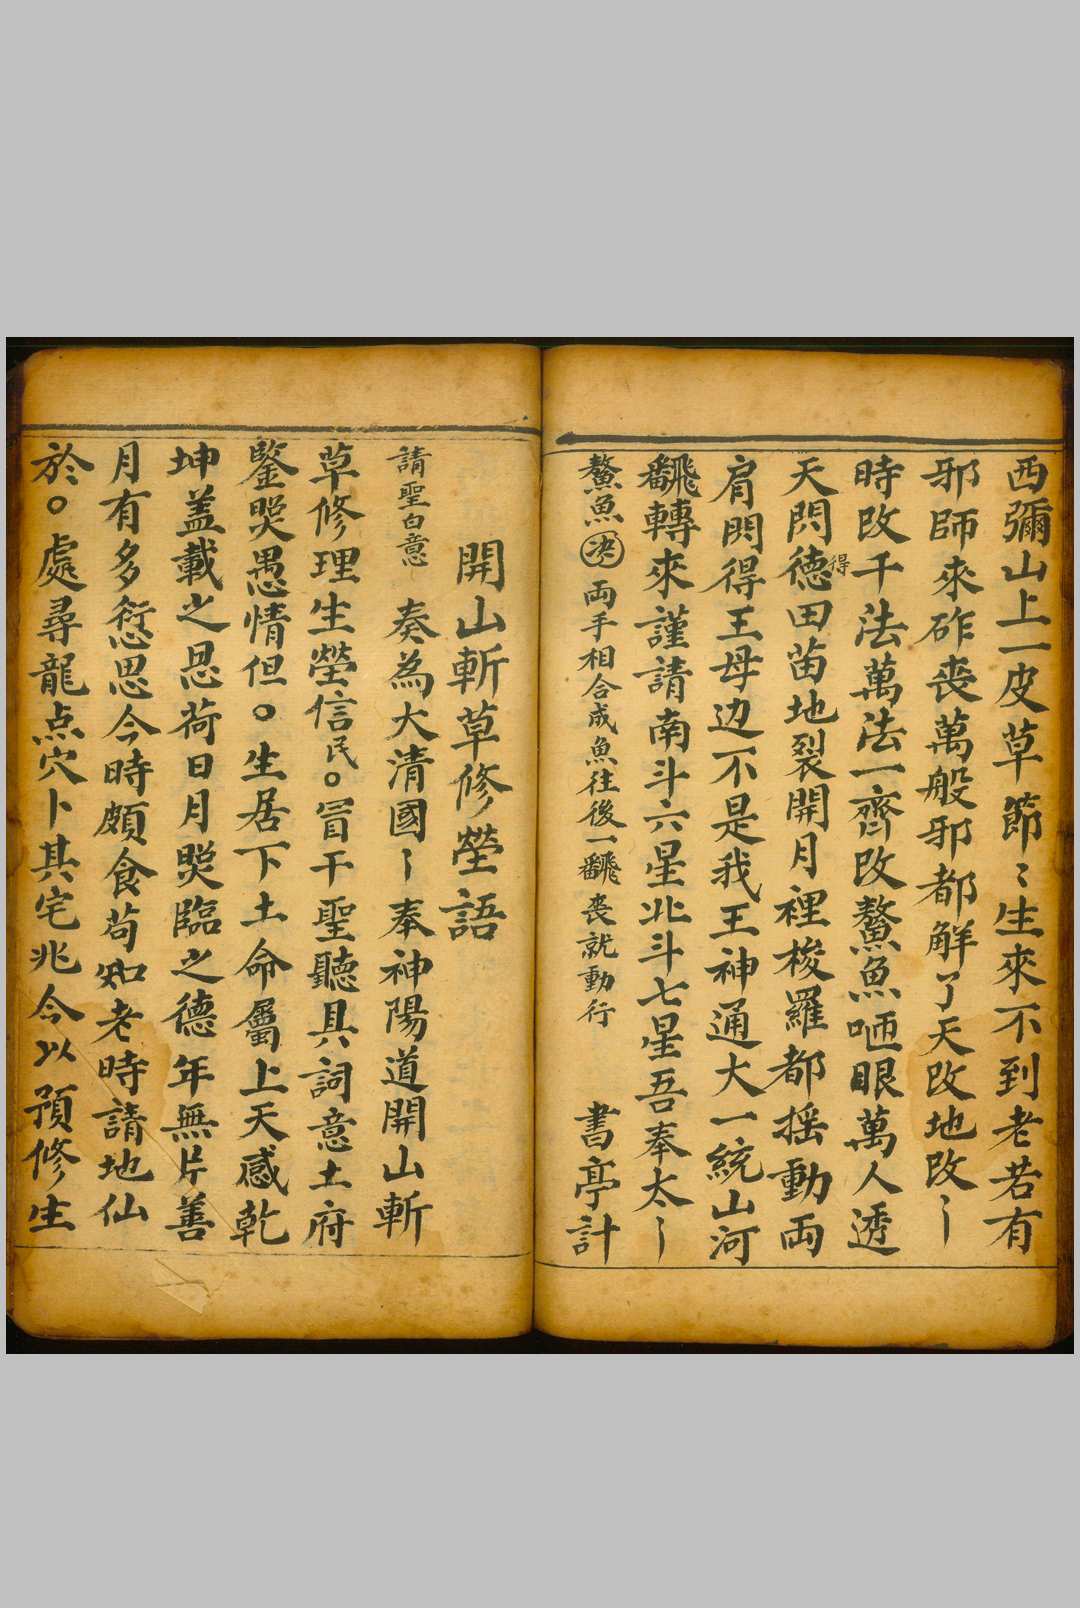 西彌山上一皮草節〻生來不到老若有
邪師來砟丧萬般邪都解了天改地改〡
時改千法萬法一齊改鰲魚哂眼萬人透
天閃德得田苗地裂開月裡梭羅都摇動両
肩閃得王母边不是我王神通大一統山河
飜轉來謹請南斗六星北斗七星吾奉太〡
鰲魚决両手相合成魚往後一飜丧就動行 書亭計
開山斬草修塋語
請聖白意〡 奏為大清國〡奉神陽道開山斬
草修理生塋信民○冒干聖聽具詞意土府
鑒煚愚情但○生居下土命屬上天感乾
坤盖載之恩荷日月煚臨之德年無片善
月有多愆思今時頗食苟知老時請地仙
於○處尋龍点穴卜其宅兆今以預修生